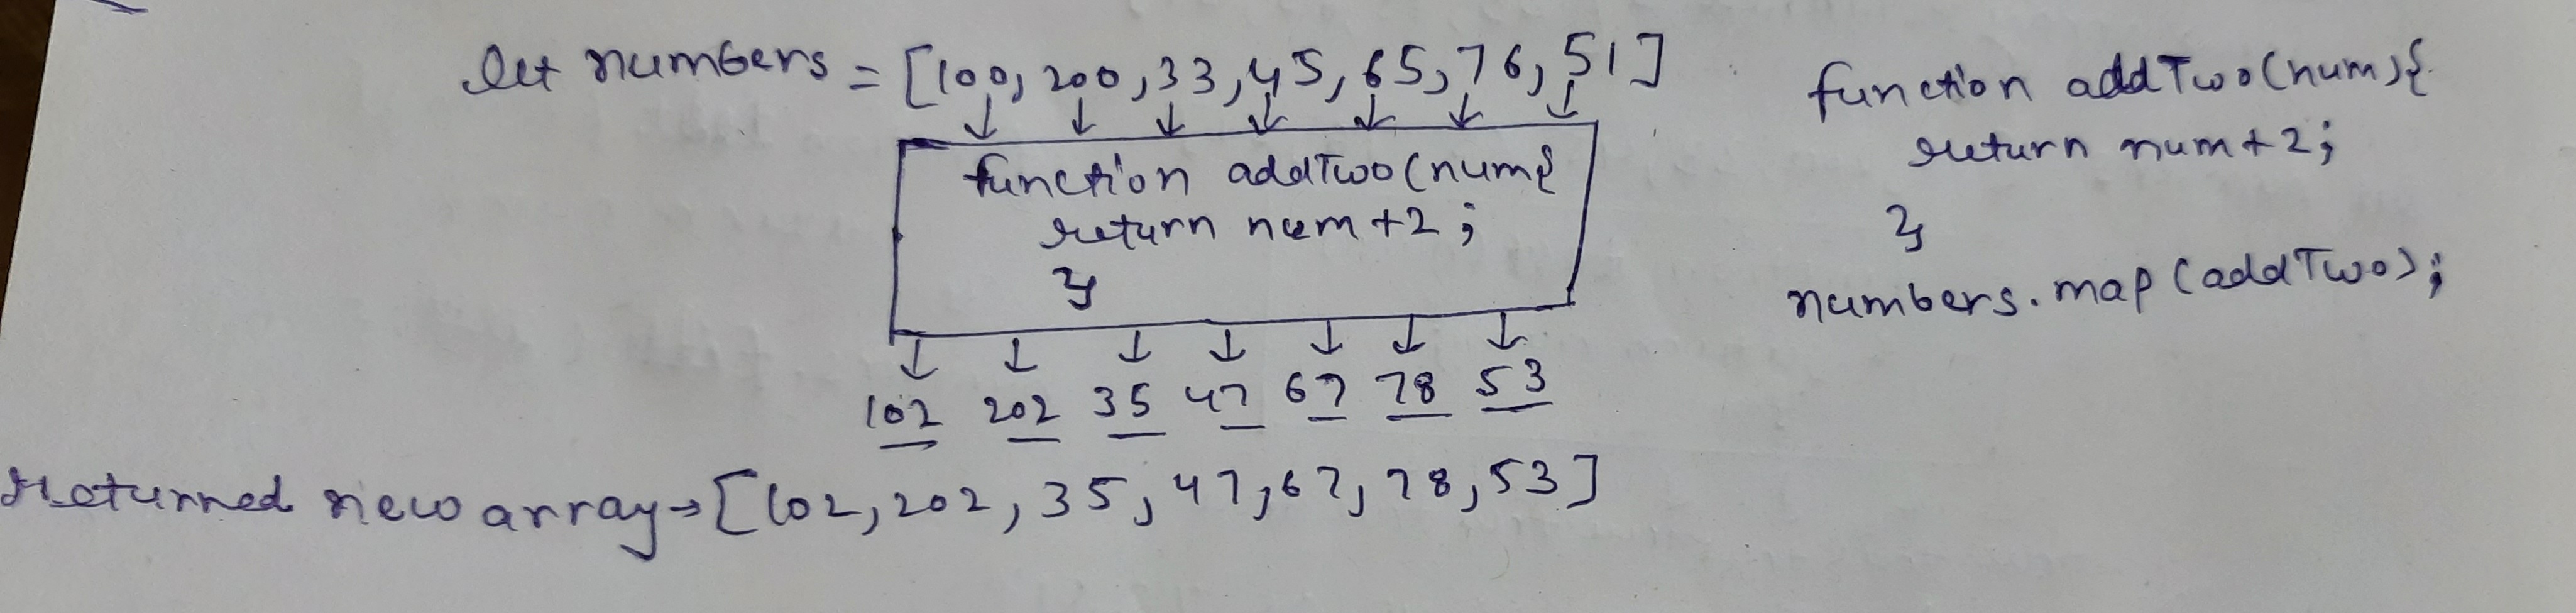 let numbers = [100, 200, 33, 45, 65, 76, 51]
function addTwo(num{
return num+2;
}
102 202 35 47 67 78 53
returned new array → [102, 202, 35, 47, 67, 78, 53]
function addTwo(num){
return num+2;
}
numbers.map(addTwo);